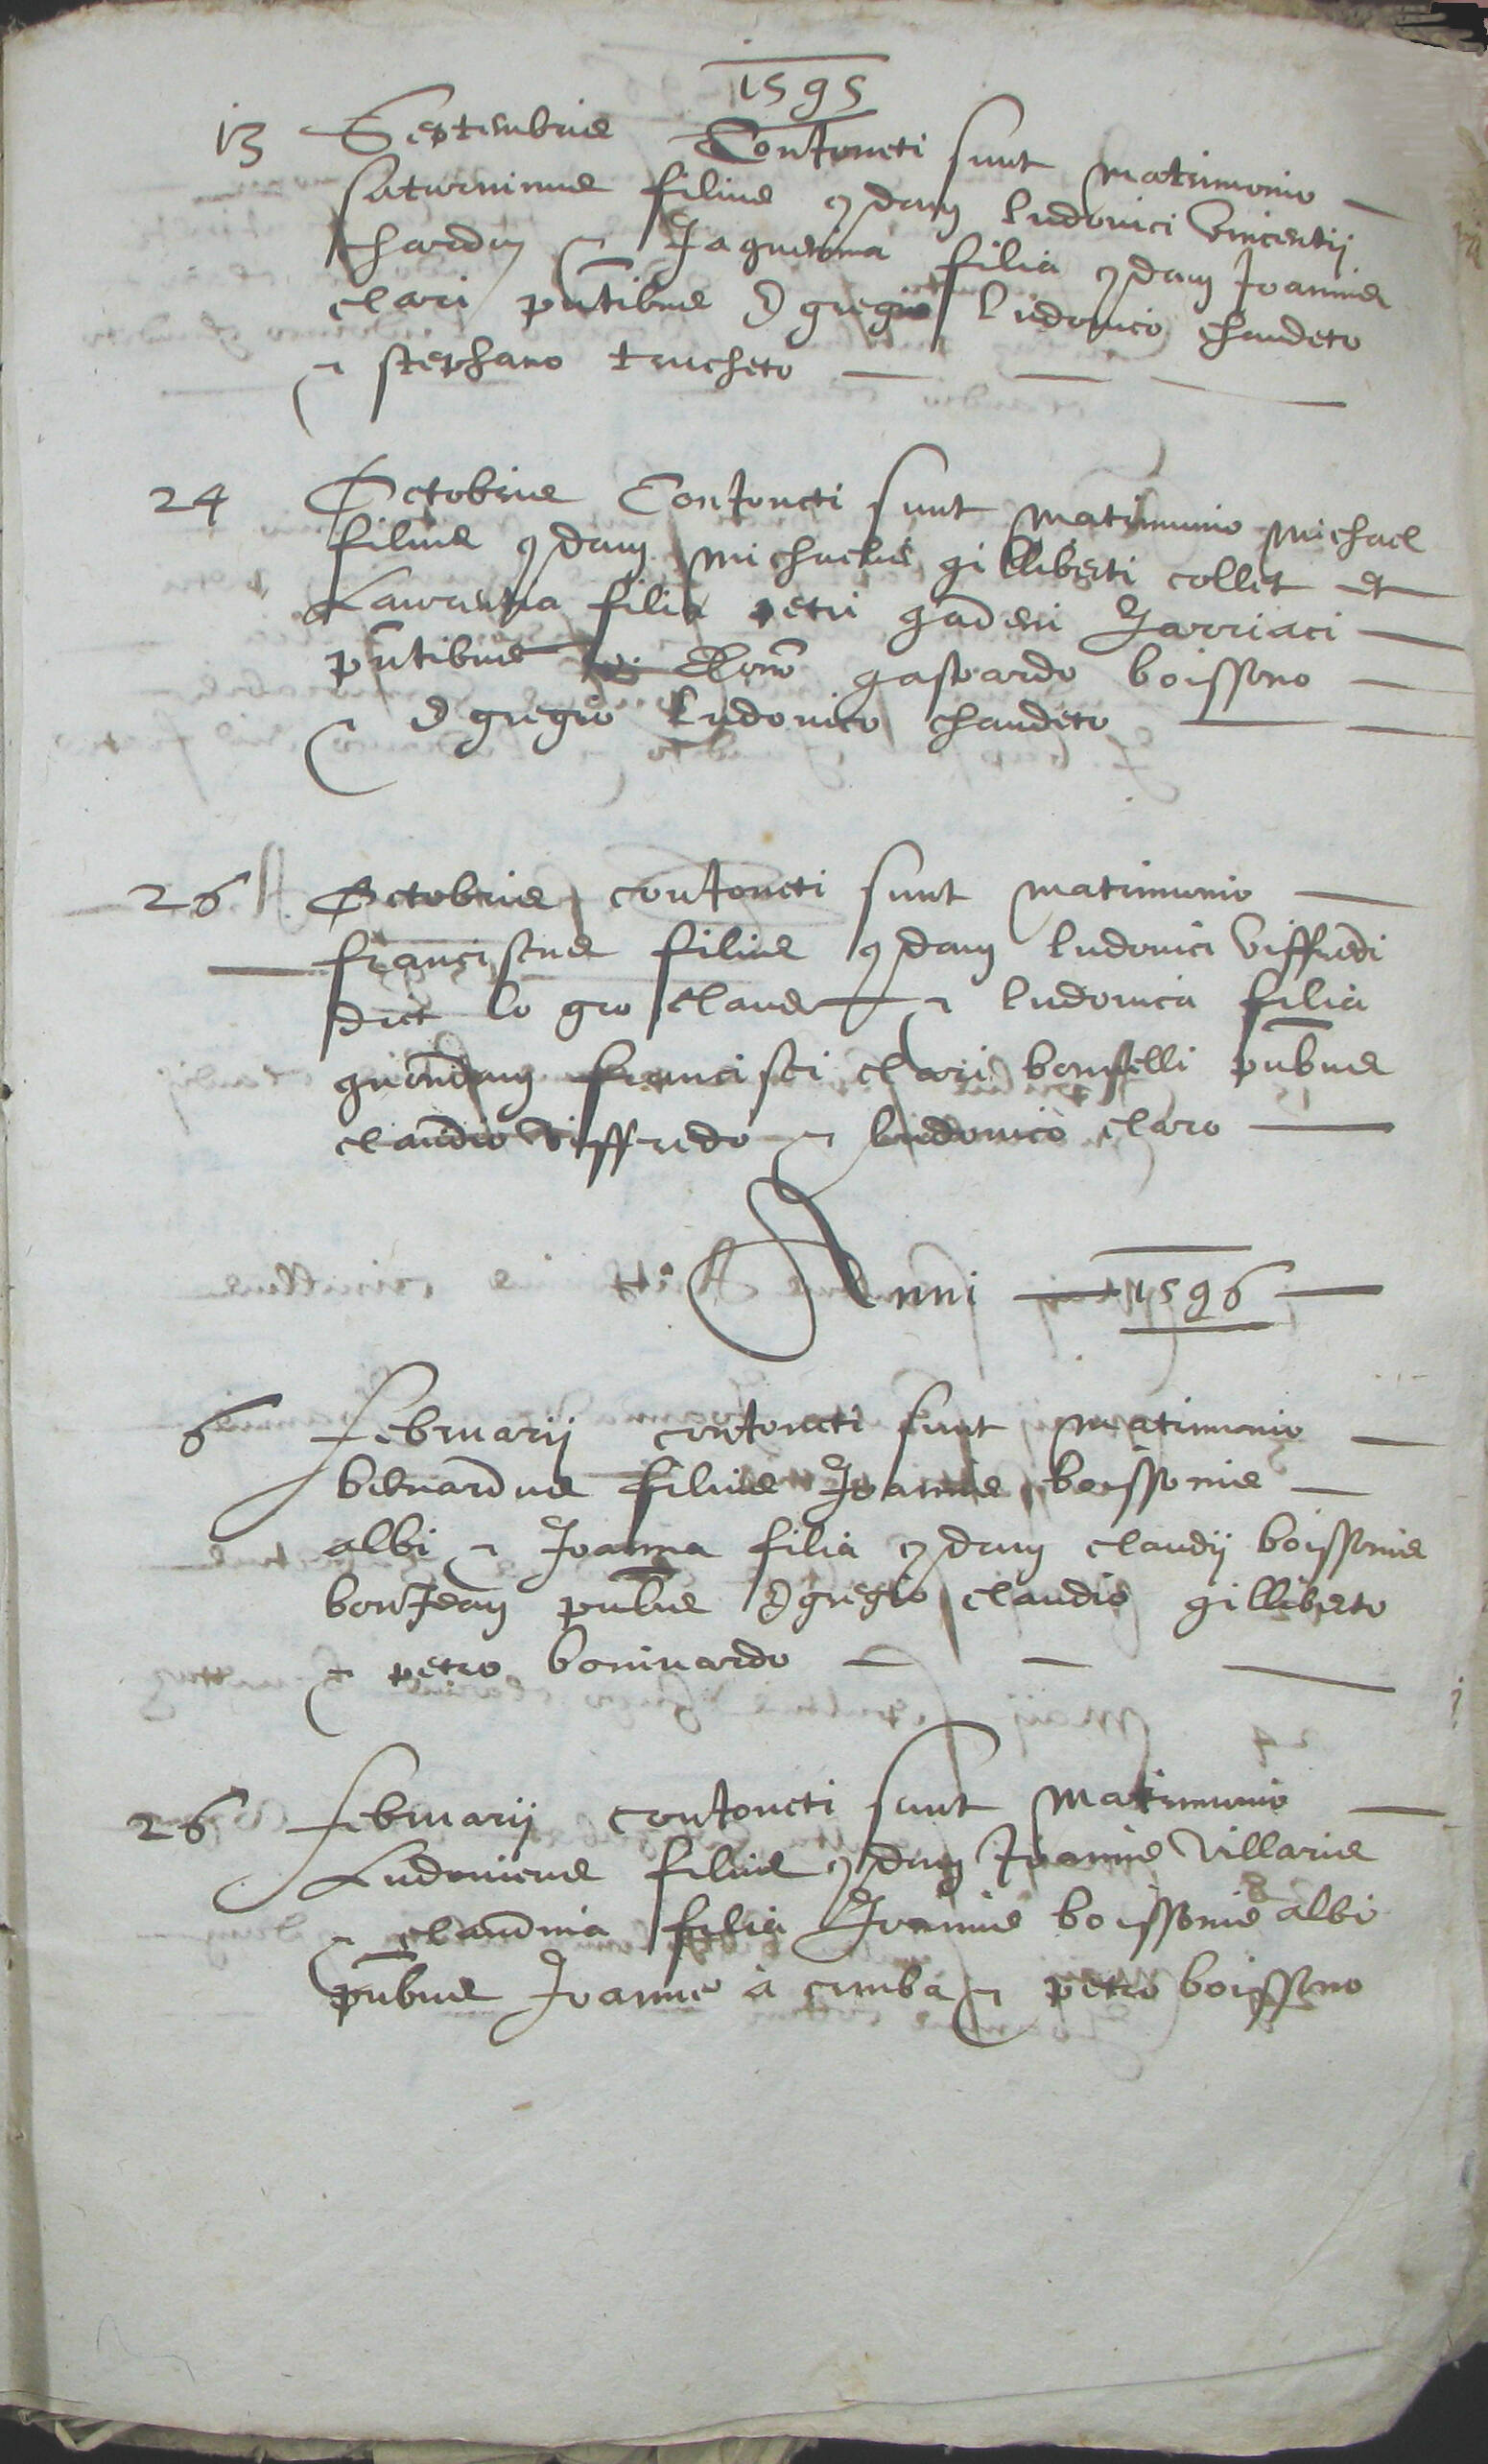 1595
13 Septembris Conjoncti sunt matrimonio
saturninus filius qdam ludovici Vincentii
chardon et Jaquemina filia qdam Joannis
clari pntibus Egregio ludovico chaudeto
et stephano trucheto
24 Octobris Conjoncti sunt matrimonio michael
filius qdam michaelis gilliberti collet et
Laurentia filia petri garderii Jarriaci
pntibus gaspardo boissono
et Egregio ludovico chaudeto
26 Octobris conjoncti sunt matrimonio
franciscus filius qdam ludovici Viffredi
dict lo gro claude et ludovica filia
quondam francisci clari bonfelli pnbus
claudio Viffredo et ludovico claro
Anni 1596
6 februarii conjoncti sunt matrimonio
bernardus filius Joannis boissonis
albi et Joanna filia qdam claudii boissonis
bonJean pnbus Egregio claudio gilliberto
et petro bonivardo
26 februarii conjoncti sunt matrimonio
Ludovicus filius qdam Joannis Villaris
et claudina filia Joannis boissonis albi
pnbus Joanne à cumba et petro boissono